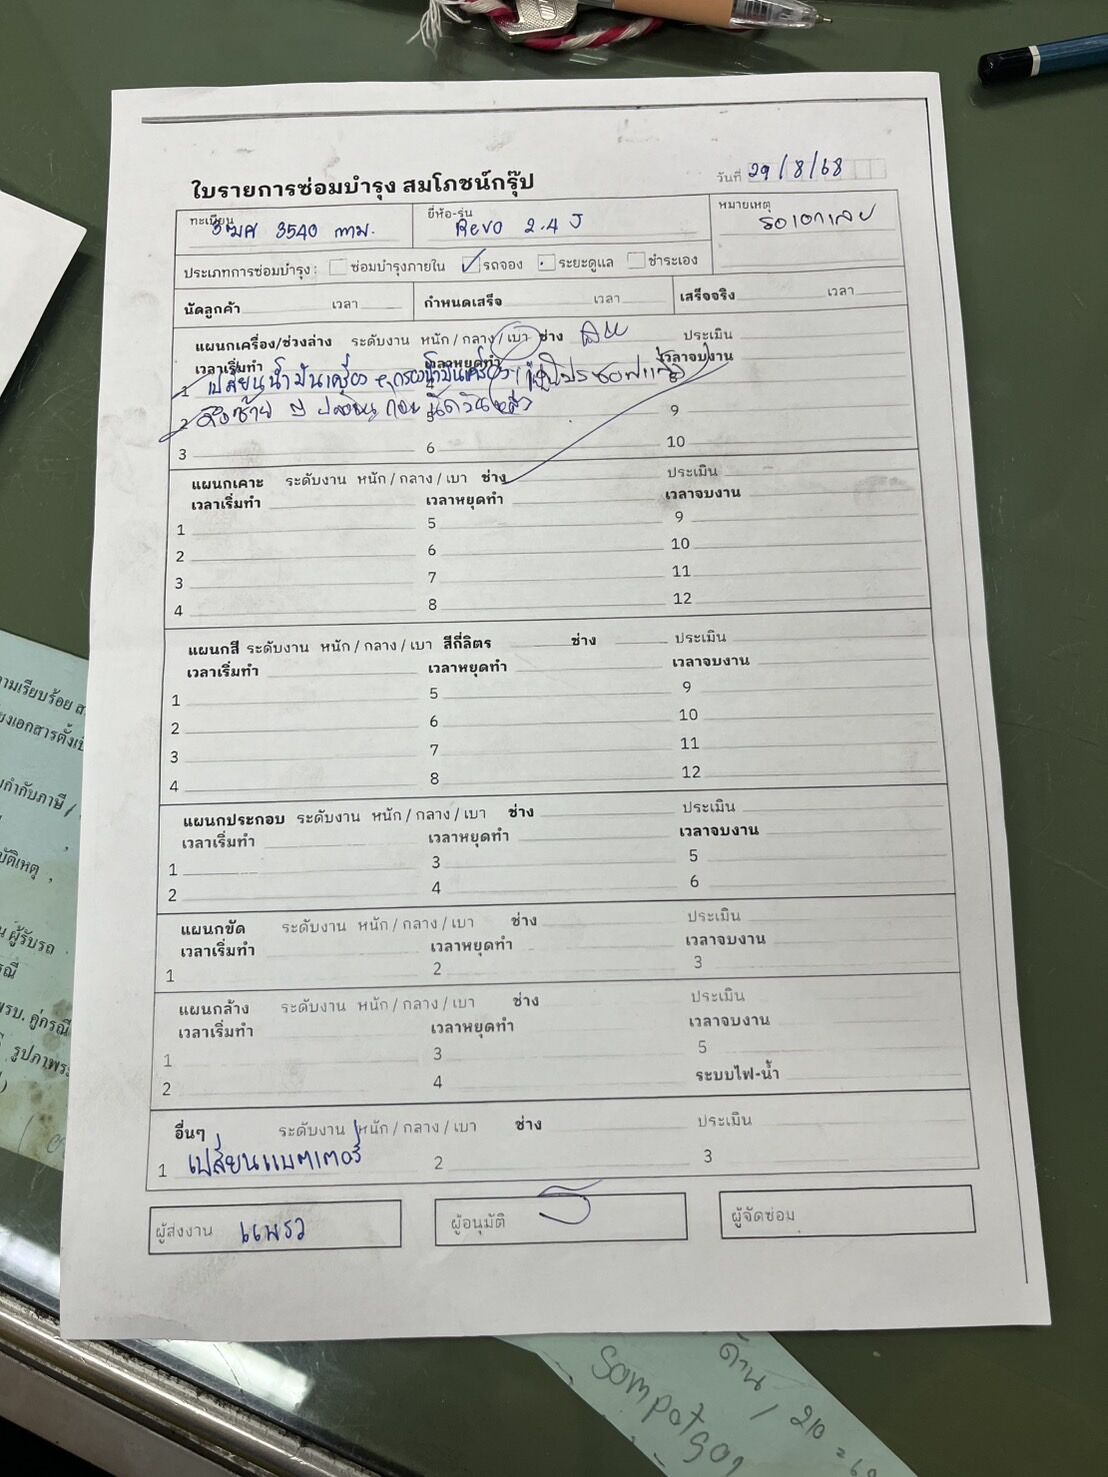 ใบรายการซ่อมบำรุง สมโภชน์กรุ๊ป
วันที่ 29/8/68
ทะเบียน 3540 กทม.
ยี่ห้อ-รุ่น Revo 2.4 J
หมายเหตุ รอเอกเลย
ประเภทการซ่อมบำรุง : ซ่อมบำรุงภายใน รถจอง ระยะดูแล ชำระเอง
นัดลูกค้า เวลา กำหนดเสร็จ เวลา เสร็จจริง เวลา
แผนกเครื่อง/ช่วงล่าง ระดับงาน หนัก / กลาง / เบา ช่าง ประเมิน
เวลาเริ่มทำ เวลาหยุดทำ เวลาจบงาน
1 เปลี่ยนน้ำมันเครื่อง กรองน้ำมันเครื่อง
2 9
3 6 10
แผนกเคาะ ระดับงาน หนัก / กลาง / เบา ช่าง ประเมิน
เวลาเริ่มทำ เวลาหยุดทำ เวลาจบงาน
1 5 9
2 6 10
3 7 11
4 8 12
แผนกสี ระดับงาน หนัก / กลาง / เบา สีกี่ลิตร ช่าง ประเมิน
เวลาเริ่มทำ เวลาหยุดทำ เวลาจบงาน
1 5 9
2 6 10
3 7 11
4 8 12
แผนกประกอบ ระดับงาน หนัก / กลาง / เบา ช่าง ประเมิน
เวลาเริ่มทำ เวลาหยุดทำ เวลาจบงาน
1 3 5
2 4 6
แผนกขัด ระดับงาน หนัก / กลาง / เบา ช่าง ประเมิน
เวลาเริ่มทำ เวลาหยุดทำ เวลาจบงาน
1 2 3
แผนกล้าง ระดับงาน หนัก / กลาง / เบา ช่าง ประเมิน
เวลาเริ่มทำ เวลาหยุดทำ เวลาจบงาน
1 3 5
2 4 ระบบไฟ-น้ำ
อื่นๆ ระดับงาน หนัก / กลาง / เบา ช่าง ประเมิน
1 เปลี่ยนแบตเตอรี่ 2 3
ผู้ส่งงาน แพรว
ผู้อนุมัติ
ผู้จัดซ่อม
ามเรียบร้อย
กำกับภาษี /
บัติเหตุ ,
ผู้รับรถ
รณี
พรบ. คู่กรณี
รูปภาพ
ด้าน / 210